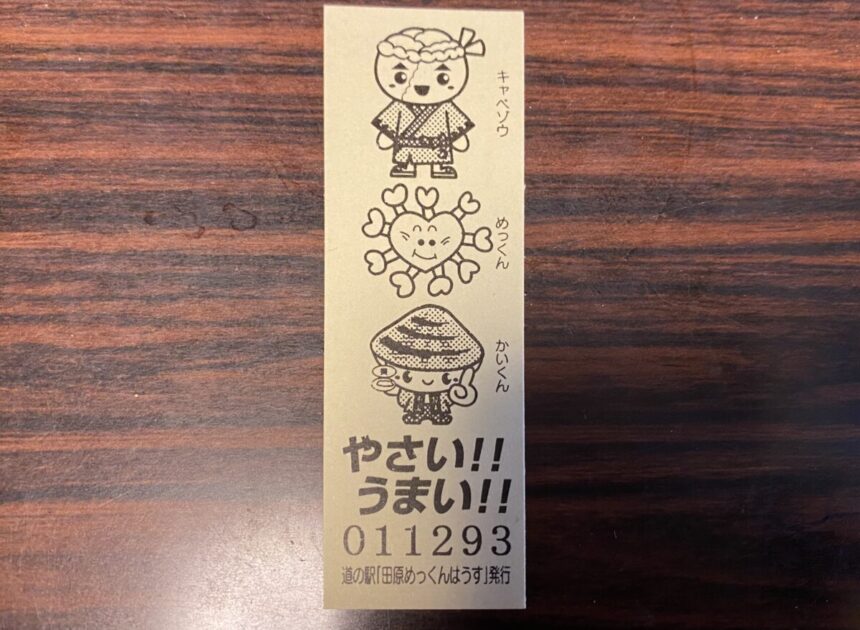 キャベゾウ
めっくん
かいくん
やさい!!
うまい!!
011293
道の駅「田原めっくんはうす」発行